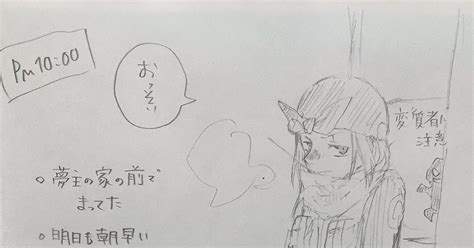 PM 10:00
おっそい
変質者
注意
○ 夢主の家の前で
まってた
○ 明日も朝早い